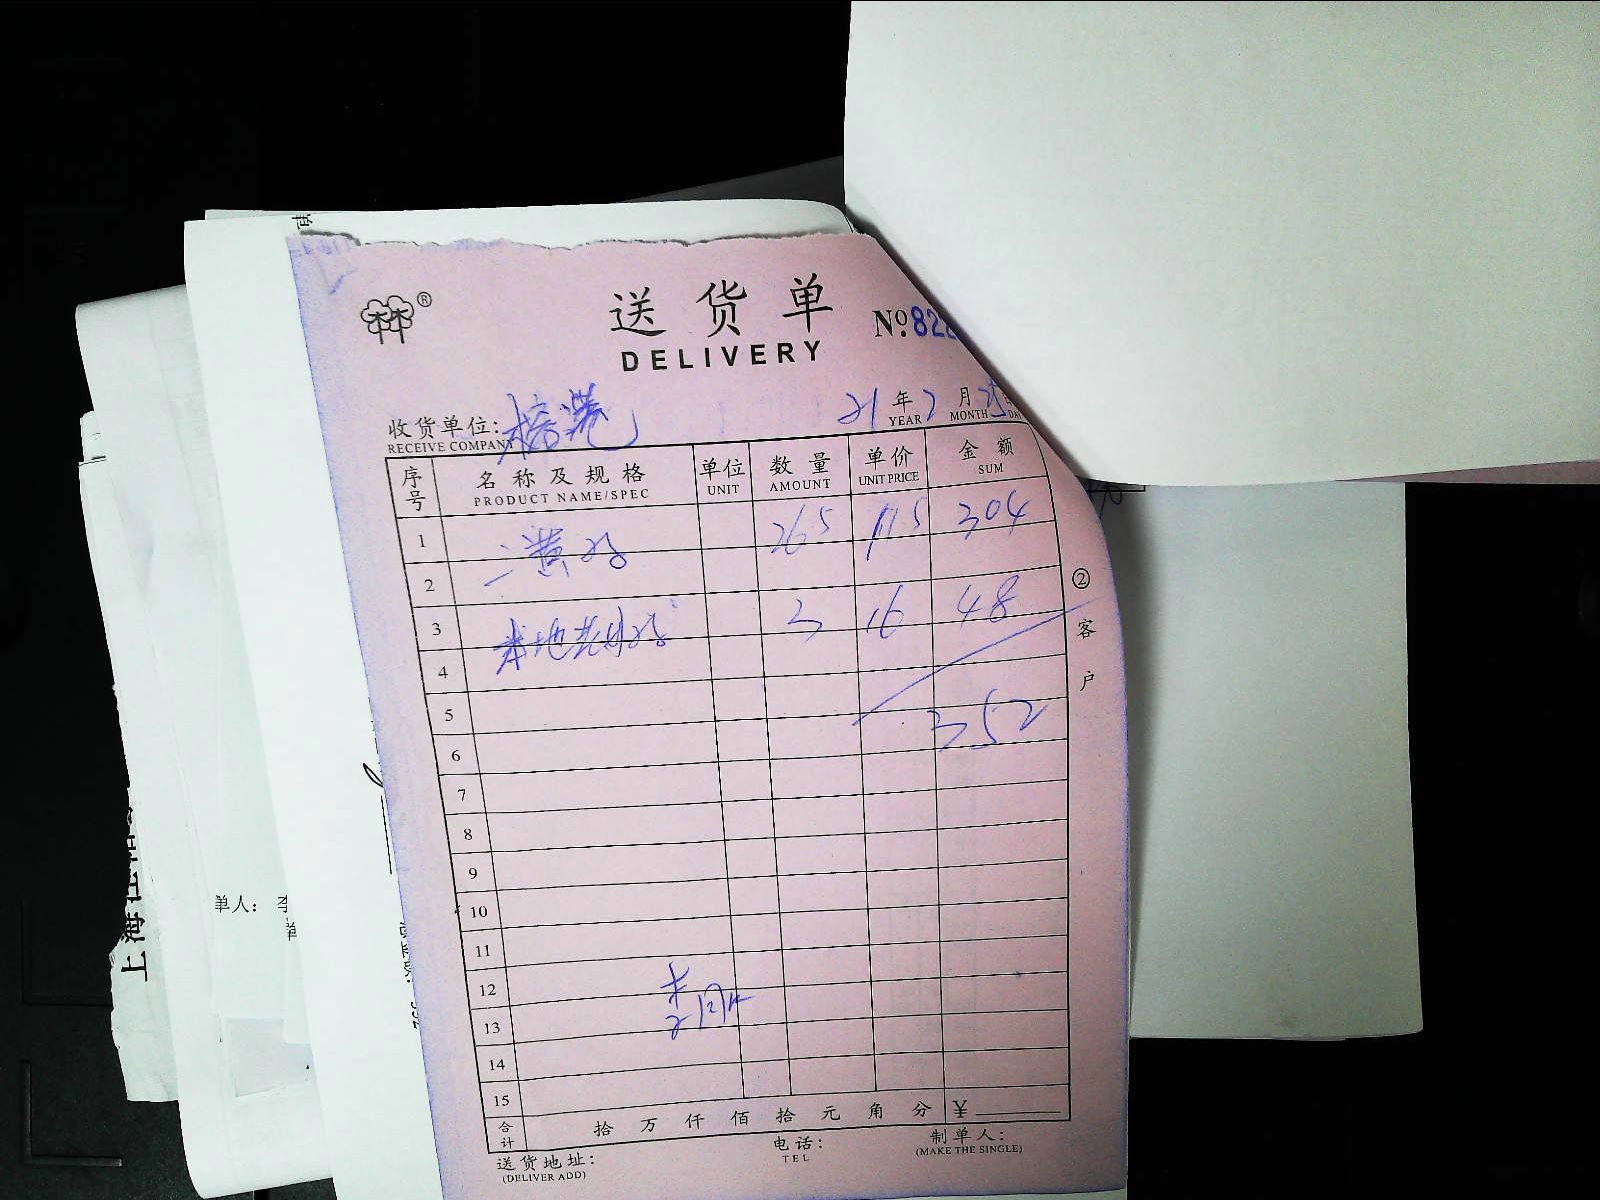 送货单
DELIVERY
®
№ 822
收货单位:
RECEIVE COMPANY
21 年 2 月 25
YEAR MONTH DA
序号 名称及规格 单位 数量 单价 金额
PRODUCT NAME/SPEC UNIT AMOUNT UNIT PRICE SUM
1 265 115 304
2 三黄
3 3 16 48
4 本地
5
352
6
7
8
9
10
11
12
13
14
15
合计 拾 万 仟 佰 拾 元 角 分 ¥
送货地址: 电话: 制单人:
(DELIVER ADD) TEL (MAKE THE SINGLE)
② 客户
单人: 李
上海